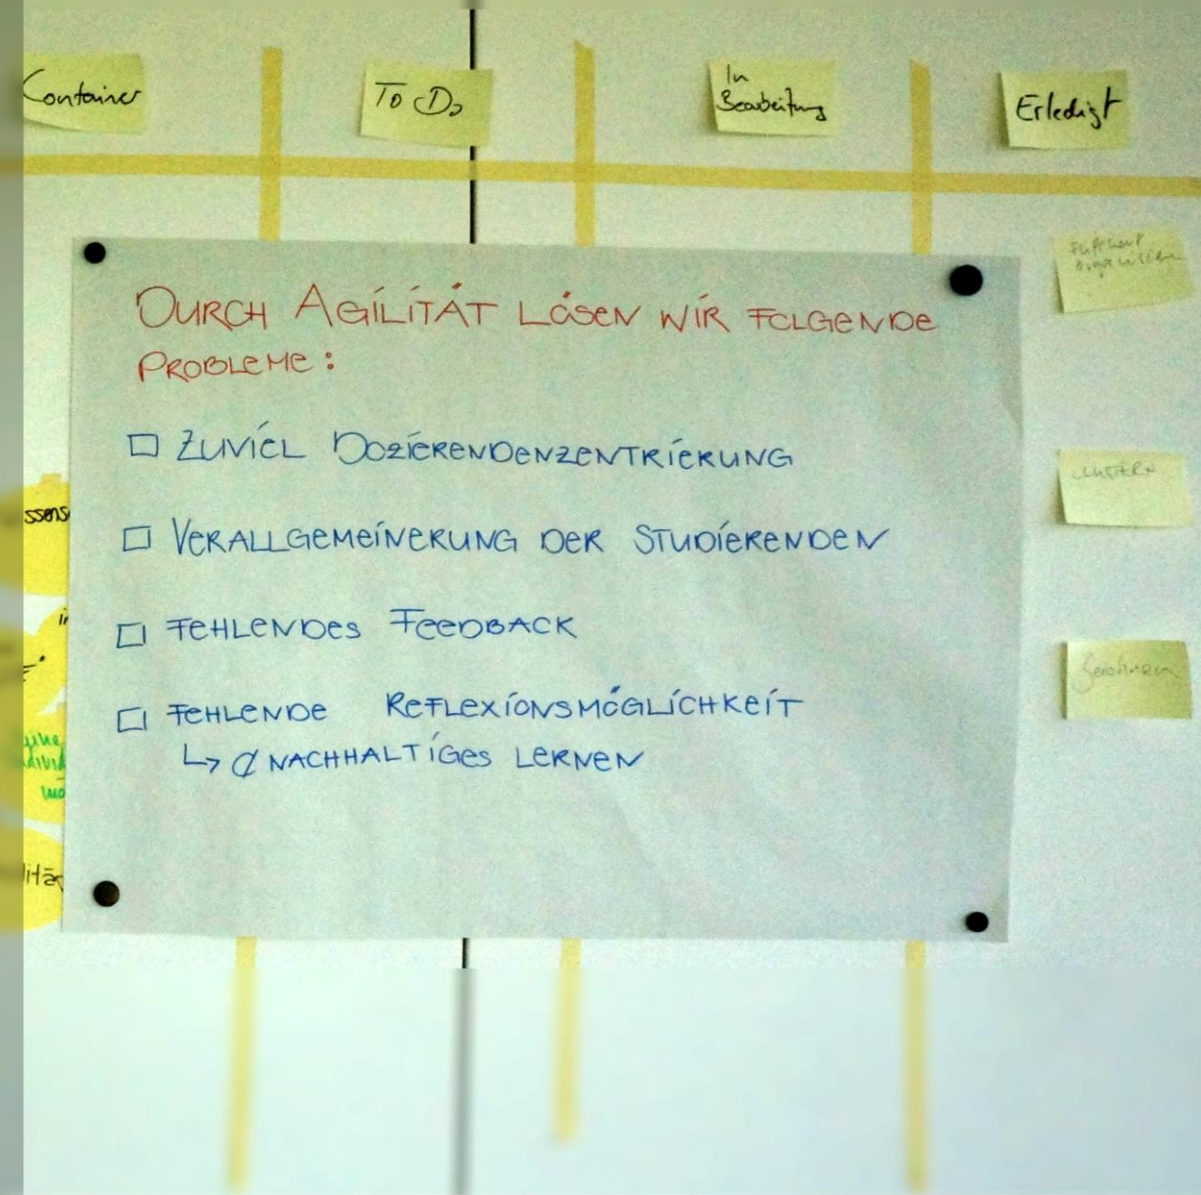 Container
To Do
In
Bearbeitung
Erledigt
DURCH AGILITÄT LÖSEN WIR FOLGENDE
PROBLEME:
☐ ZUVIEL DOZIERENDENZENTRIERUNG
☐ VERALLGEMEINERUNG DER STUDIERENDEN
☐ FEHLENDES FEEDBACK
☐ FEHLENDE REFLEXIONSMÖGLICHKEIT
↳ Ø NACHHALTIGES LERNEN
Flipchart
organisieren
Zeichnen